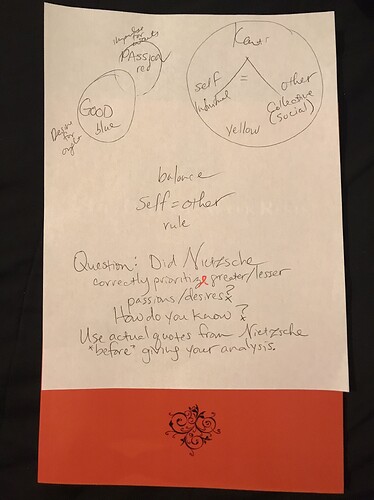 impulse for
results
PAssion
red
GOOD
blue
Desire
for
Kant:
self
=
other
Individual
Collective
(social)
yellow
balance
Self = other
rule
Question: Did Nietzsche
correctly prioritize greater/lesser
passions/desires?
How do you know?
Use actual quotes from Nietzsche
*before* giving your analysis.